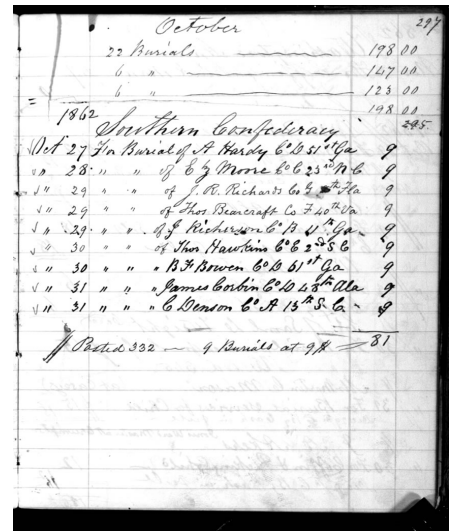 297
October
22 Burials 198 00
6 " 147 00
6 " 123 00
198 00
1862 295
Southern Confederacy
Oct 27 For Burial of A Hardy Co D 51st Ga 9
" 28 " " of E J Moore Co C 23rd N C 9
" 29 " " of J. R. Richards Co G Fla 9
" 29 " " of Thos Bearcraft Co F 40th Va 9
" 29 " " of J Richerson Co B 11th Ga 9
" 30 " " of Thos Hawkins Co E 2nd S C 9
" 30 " " " B F Bowen Co D 51st Ga 9
" 31 " " " James Corbin Co D 48th Ala 9
" 31 " " " C Denson Co A 13th S. C. 9
Posted 332 — 9 Burials at 9 $ = 81